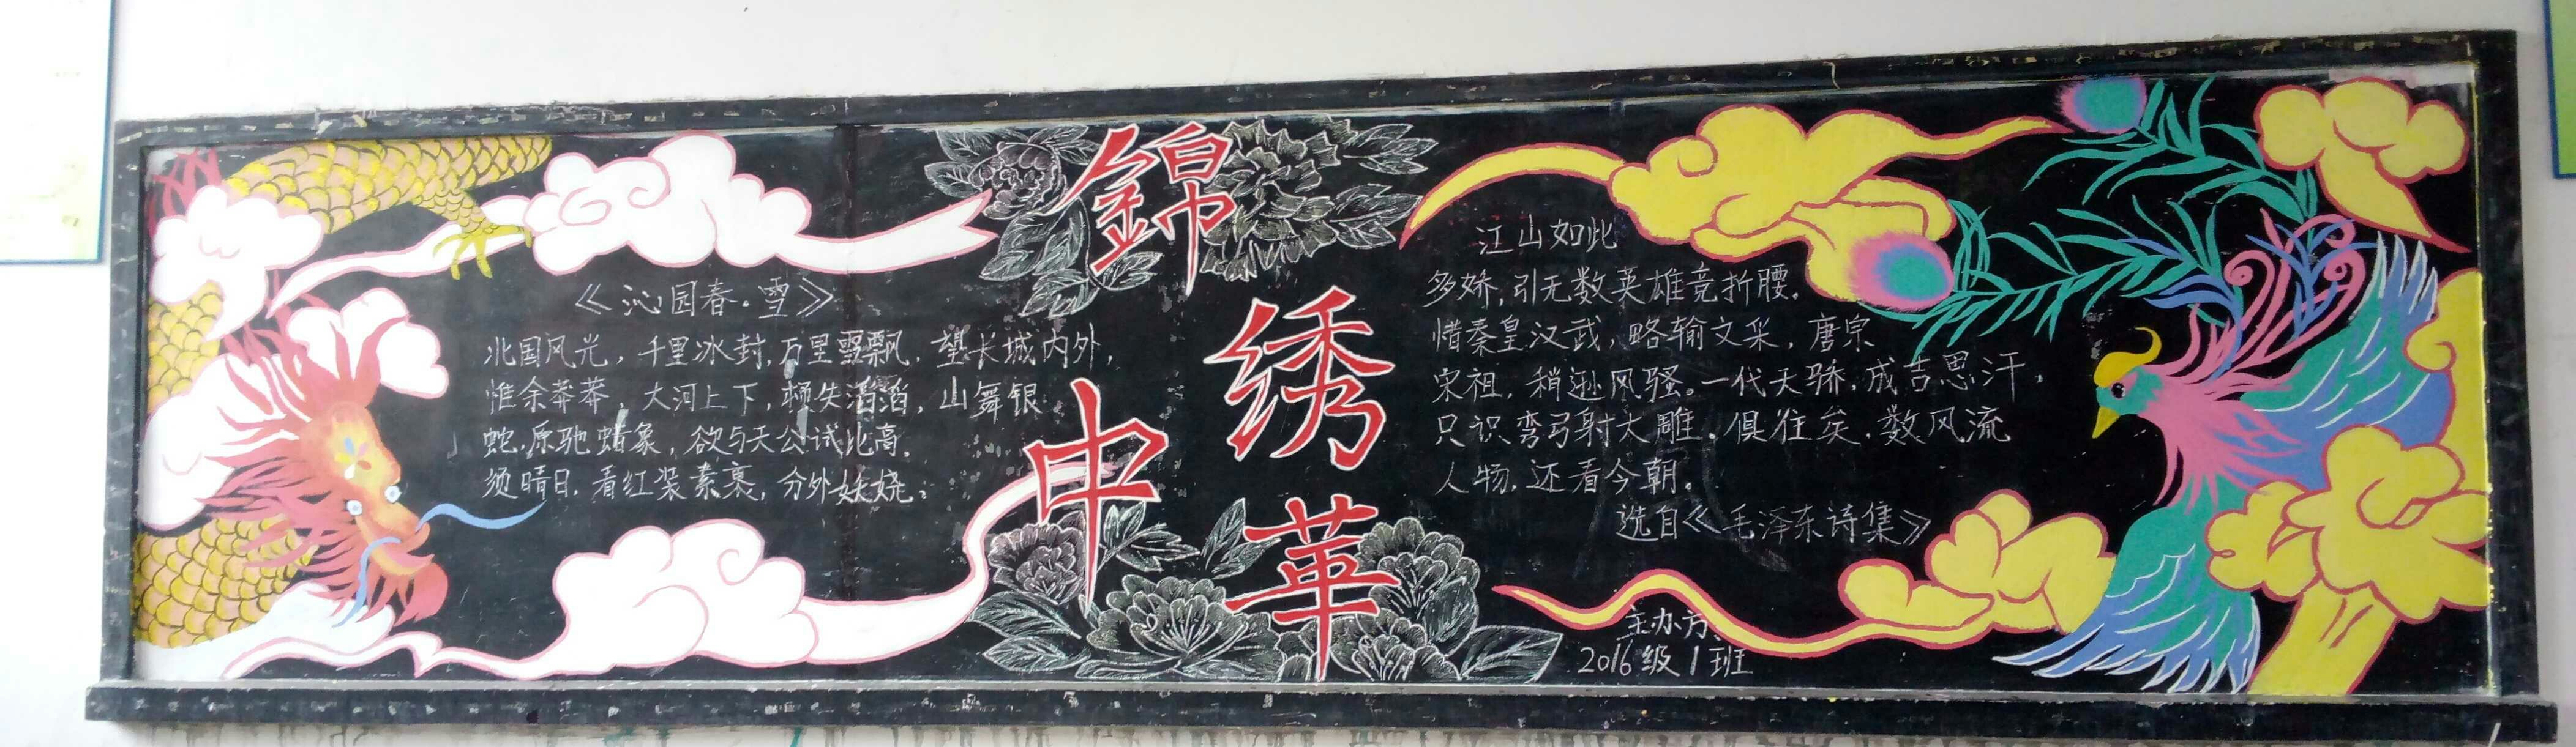 錦
绣
中
華
《沁园春·雪》
北国风光，千里冰封，万里雪飘，望长城内外，
惟余莽莽，大河上下，顿失滔滔，山舞银
蛇，原驰蜡象，欲与天公试比高，
须晴日，看红装素裹，分外妖娆。
江山如此
多娇，引无数英雄竞折腰。
惜秦皇汉武，略输文采，唐宗
宋祖，稍逊风骚。一代天骄，成吉思汗，
只识弯弓射大雕。俱往矣，数风流
人物，还看今朝。
选自《毛泽东诗集》
主办方：
2016级1班